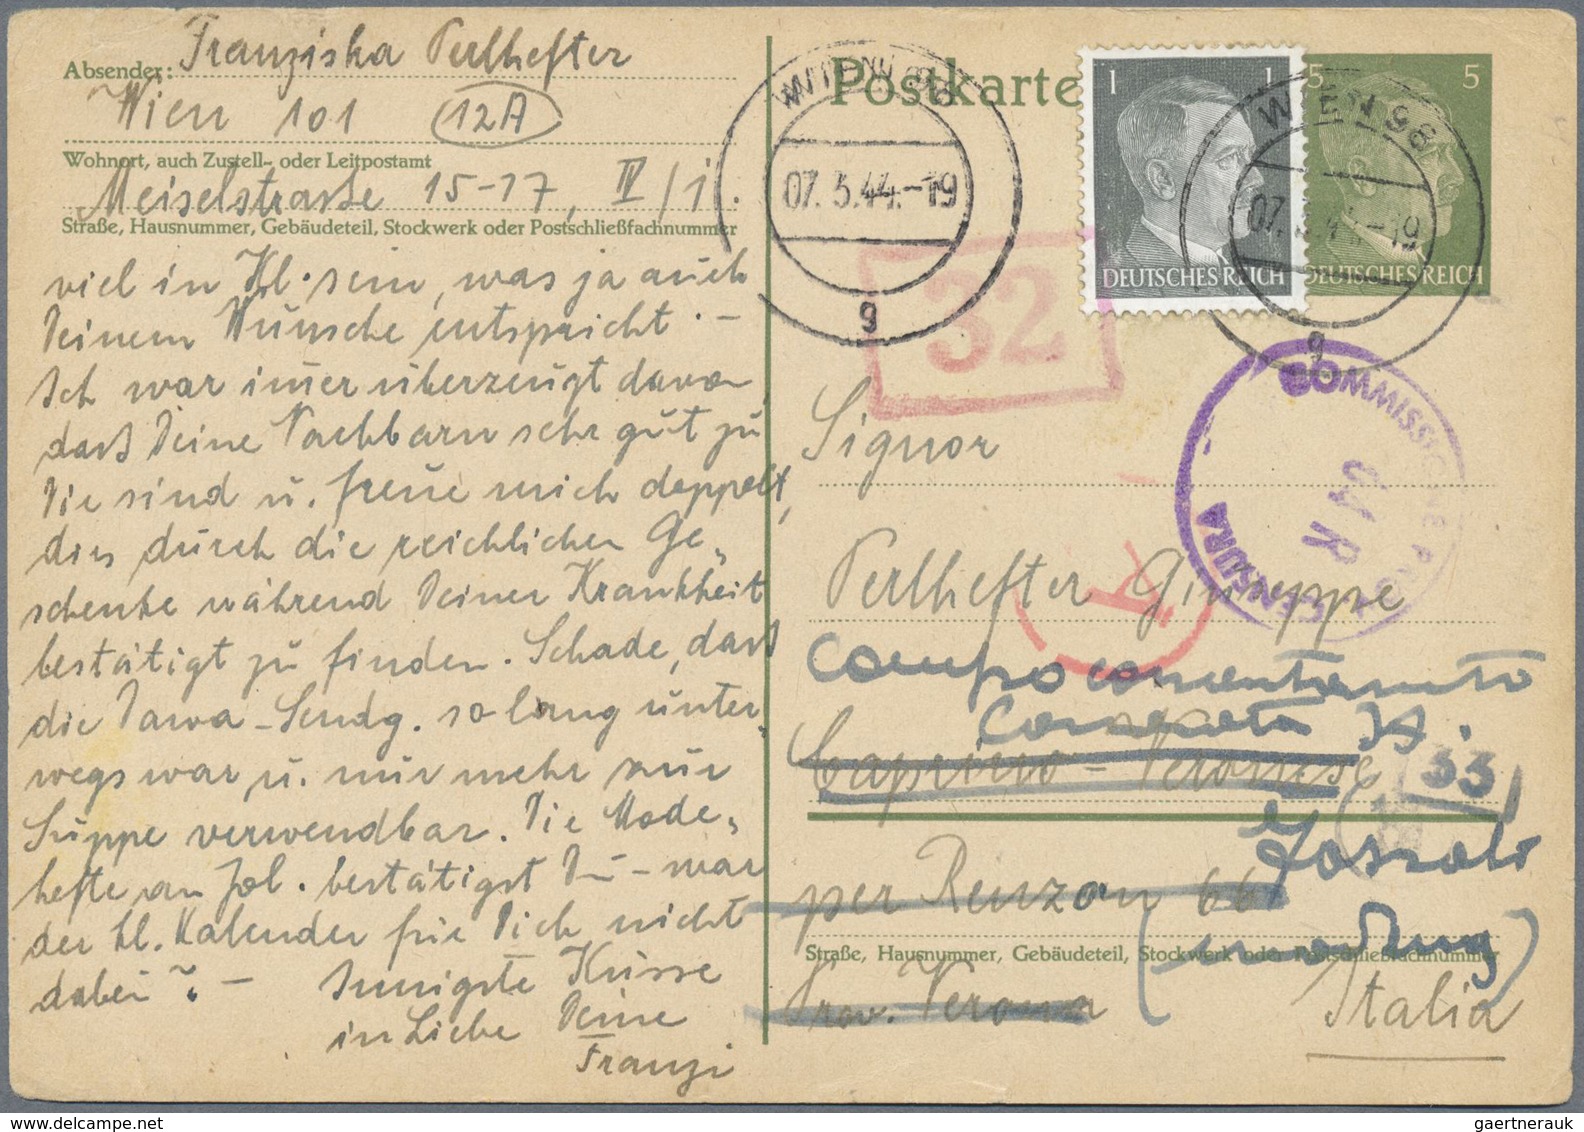 Absender: Franziska Perlhefter
Wien 101 12A
Wohnort, auch Zustell- oder Leitpostamt
Meiselstrasse 15-17, IV/1.
Straße, Hausnummer, Gebäudeteil, Stockwerk oder Postschließfachnummer
viel in Kl. sein, was ja auch
Deinem Wunsche entspricht. -
Ich war im̄er überzeugt davon,
dass Deine Nachbarn sehr gut zu
Die sind u. freue mich doppelt,
dies durch die reichlichen Ge„
schenke während Deiner Krankheit
bestätigt zu finden. Schade, dass
die Sendg. so lang unter„
wegs war u. nur mehr zur
Suppe verwendbar. Die Mode„
hefte an Jol. bestätigst Du - war
der kl. Kalender für Dich nicht
dabei? - Innigste Küsse
in Liebe Deine
Franzi
Postkarte
1 1
DEUTSCHES REICH
5 5
DEUTSCHES REICH
WIEN 98
07.3.44.-19
g
WIEN 98
07.3.44.-19
g
32
COMMISSIONE PROV. CENSURA
34 R
Signor
Perlhefter Giuseppe
Campo concentramento
Caprino-Veronese
33
Fossoli
per Renzan 66
Straße, Hausnummer, Gebäudeteil, Stockwerk oder Postschließfachnummer
Prov. Verona
Italia
gaertnerauk